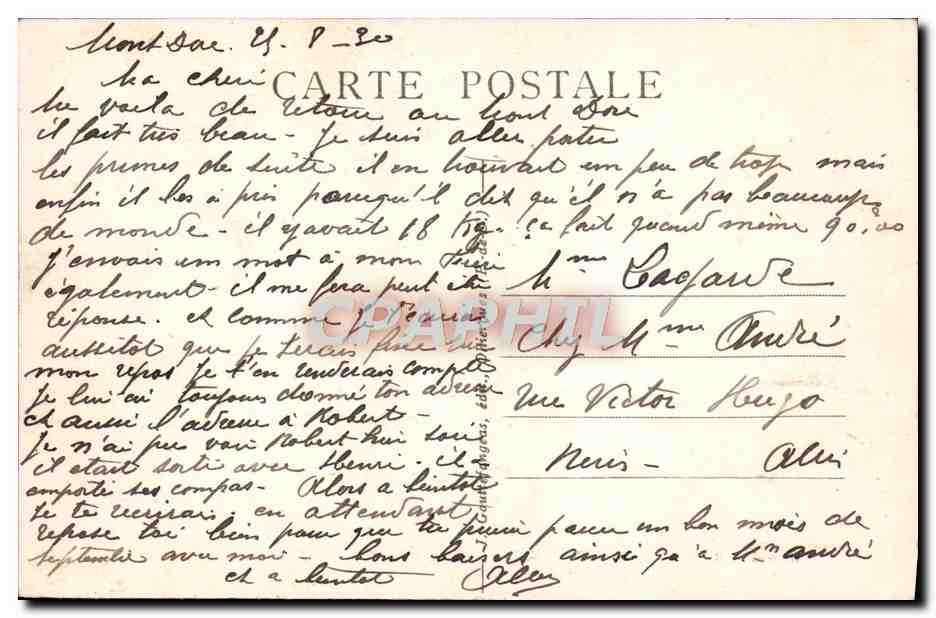 Mont Dore. 25-8-30
CARTE POSTALE
Ma cheri
Me voila de retour au Mont Dore
il fait tres beau - Je suis aller porter
les primes de suite il en trouvait un peu de trop mais
enfin il les a pris parcequ'il dit qu'il n'a pas beaucoup
de monde - il y avait 18 Kg - ça fait quand même 90,00
J'envais un mot à mon
également - il me fera peut etre
réponse. et comme je
aussitot que je serais fixé sur
mon repos je t'en renderais compte
Je lui ai toujours donné ton adresse
et aussi l'adresse à Robert -
Je n'ai pu voir Robert hier soir
il était sorti avec Henri - il
emporté ses compas - Alors a bientot
Je te recrirais. en attendant
repose toi bien pour que tu puisse passer un bon mois de
septembre avec moi - bons baisers ainsi qu'à Mme andré
et a bientot
Mme Lagarde
Chez Mme André
rue Victor Hugo
Neris - Allier
CPAPHIL